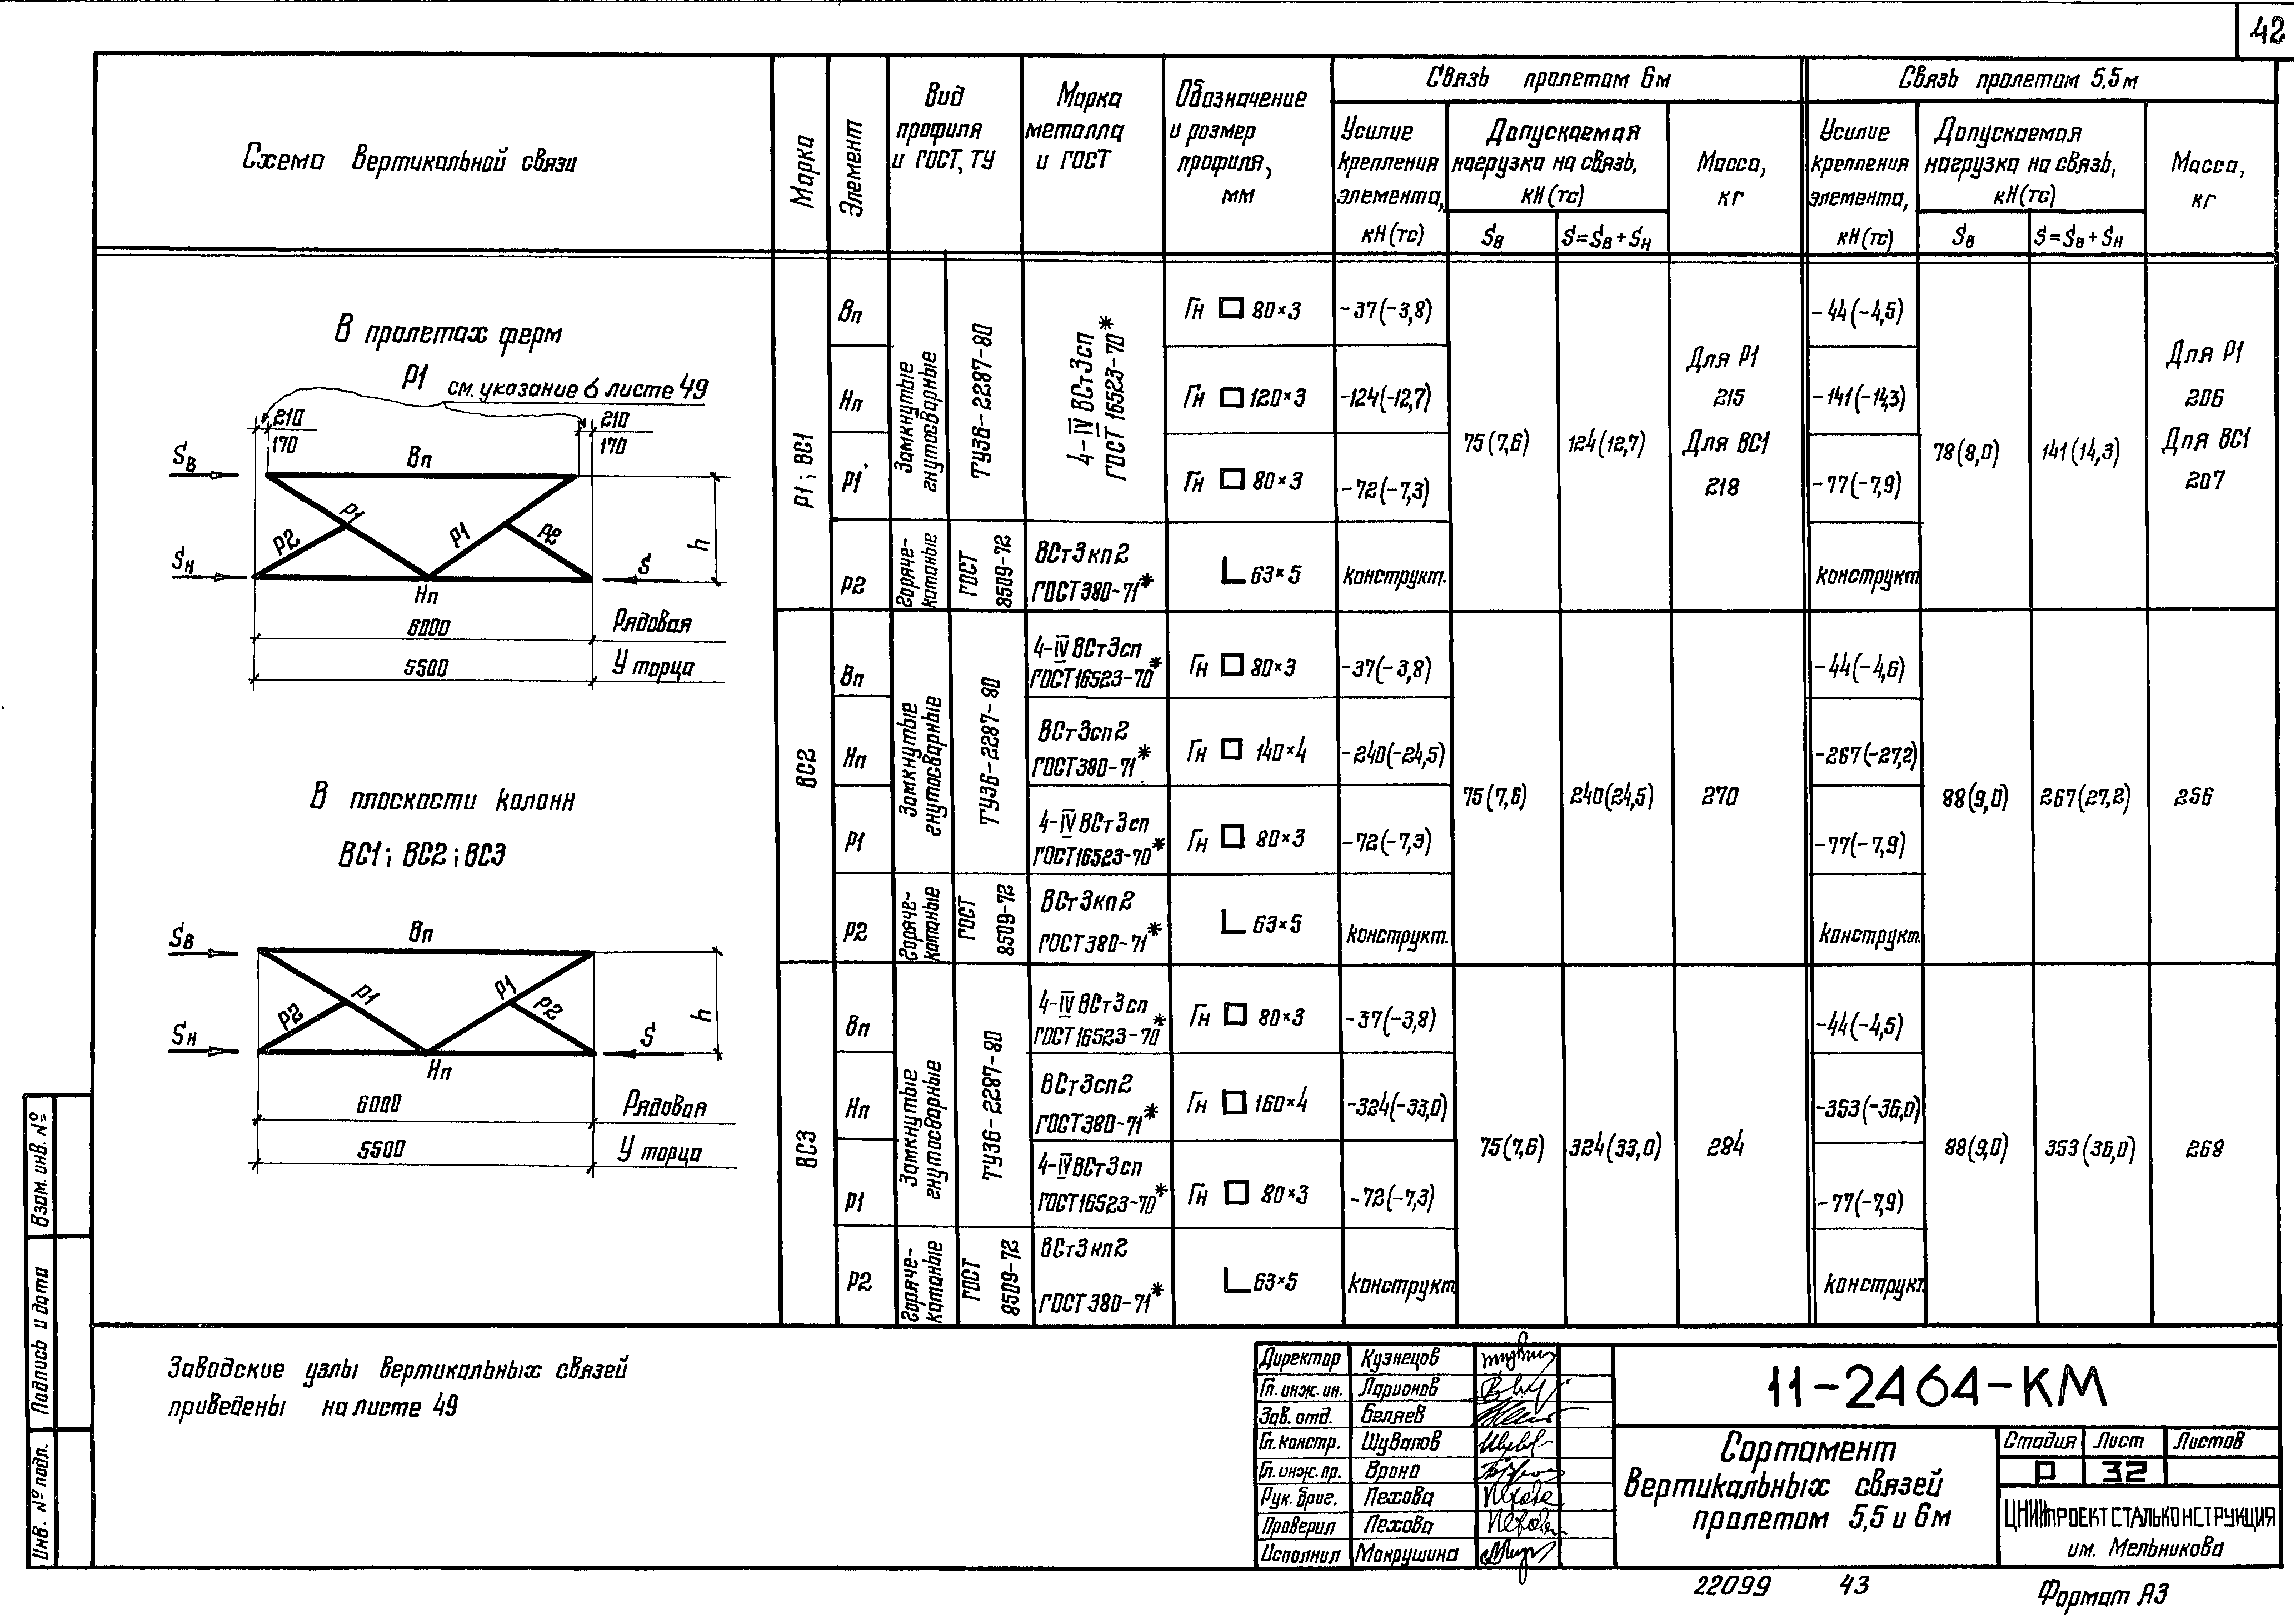 42
Схема вертикальной связи
Марка
Элемент
Вид
профиля
и ГОСТ, ТУ
Марка
металла
и ГОСТ
Обозначение
и размер
профиля,
мм
Связь пролетом 6м
Усилие
крепления
элемента,
кН (тс)
Допускаемая
нагрузка на связь,
кН (тс)
Sв
S=Sв+Sн
Масса,
кг
Связь пролетом 5,5м
Усилие
крепления
элемента,
кН (тс)
Допускаемая
нагрузка на связь,
кН (тс)
Sв
S=Sв+Sн
Масса,
кг
В пролетах ферм
Р1 см. указание в листе 49
210
170
210
170
Sв
Вп
Р1
Р1
Р2
Р2
h
Sн
S
Нп
6000 Рядовая
5500 У торца
В плоскости колонн
ВС1; ВС2; ВС3
Sв
Вп
Р1
Р1
Р2
Р2
h
Sн
S
Нп
6000 Рядовая
5500 У торца
Р1; ВС1
Замкнутые гнутосварные
ТУ36-2287-80
4-IV ВСт3сп
ГОСТ 16523-70*
Вп Гн □ 80×3 -37(-3,8) -44(-4,5)
Нп Гн □ 120×3 -124(-12,7) -141(-14,3)
Р1 Гн □ 80×3 -72(-7,3) -77(-7,9)
75(7,6) 124(12,7)
Для Р1
215
Для ВС1
218
78(8,0) 141(14,3)
Для Р1
206
Для ВС1
207
Р2
Горяче-
катаные
ГОСТ
8509-72
ВСт3кп2
ГОСТ380-71*
∟63×5 конструкт. конструкт.
ВС2
Замкнутые гнутосварные
ТУ36-2287-80
Вп
4-IV ВСт3сп
ГОСТ16523-70*
Гн □ 80×3 -37(-3,8) -44(-4,6)
Нп
ВСт3сп2
ГОСТ380-71*
Гн □ 140×4 -240(-24,5) -267(-27,2)
75(7,6) 240(24,5) 270 88(9,0) 267(27,2) 256
Р1
4-IV ВСт3сп
ГОСТ16523-70*
Гн □ 80×3 -72(-7,3) -77(-7,9)
Р2
Горяче-
катаные
ГОСТ
8509-72
ВСт3кп2
ГОСТ380-71*
∟63×5 конструкт. конструкт.
ВС3
Замкнутые гнутосварные
ТУ36-2287-80
Вп
4-IV ВСт3сп
ГОСТ16523-70*
Гн □ 80×3 -37(-3,8) -44(-4,5)
Нп
ВСт3сп2
ГОСТ380-71*
Гн □ 160×4 -324(-33,0) -353(-36,0)
75(7,6) 324(33,0) 284 88(9,0) 353(36,0) 268
Р1
4-IV ВСт3сп
ГОСТ16523-70*
Гн □ 80×3 -72(-7,3) -77(-7,9)
Р2
Горяче-
катаные
ГОСТ
8509-72
ВСт3кп2
ГОСТ380-71*
∟63×5 конструкт. конструкт.
Заводские узлы вертикальных связей
приведены на листе 49
Взам. инв. №
Подпись и дата
Инв. № подл.
Директор Кузнецов
Гл. инж. ин. Ларионов
Зав. отд. Беляев
Гл. констр. Шувалов
Гл. инж. пр. Вроно
Рук. бриг. Пехова
Проверил Пехова
Исполнил Мокрушина
11-2464-КМ
Сортамент
вертикальных связей
пролетом 5,5 и 6м
Стадия Лист Листов
Р 32
ЦНИИПРОЕКТСТАЛЬКОНСТРУКЦИЯ
им. Мельникова
22099 43 Формат А3